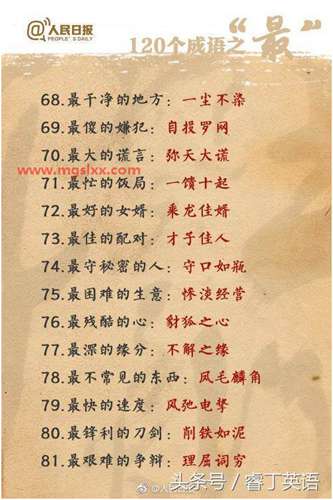 @人民日报
PEOPLE'S DAILY
120个成语之"最"
68.最干净的地方：一尘不染
69.最傻的嫌犯：自投罗网
70.最大的谎言：弥天大谎
71.最忙的饭局：一馈十起
www.mgslxx.com
72.最好的女婿：乘龙佳婿
73.最佳的配对：才子佳人
74.最守秘密的人：守口如瓶
75.最困难的生意：惨淡经营
76.最残酷的心：豺狐之心
77.最深的缘分：不解之缘
78.最不常见的东西：凤毛麟角
79.最快的速度：风驰电掣
80.最锋利的刀剑：削铁如泥
81.最艰难的争辩：理屈词穷
头条号 / 睿丁英语